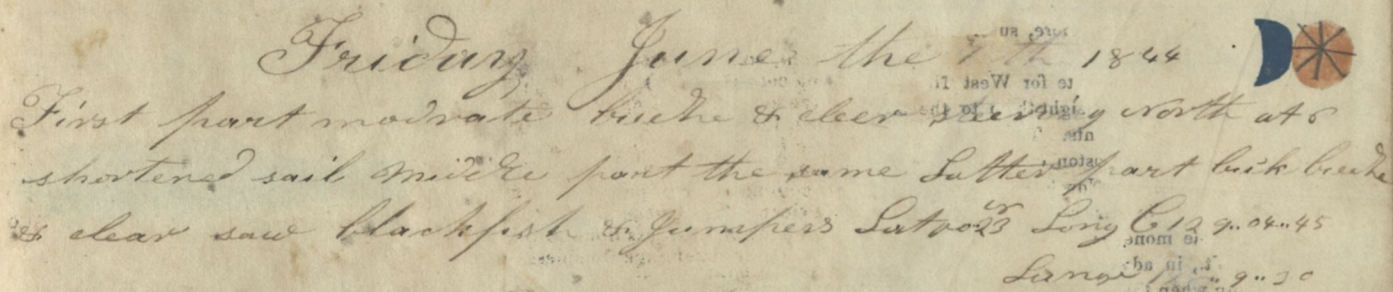 Friday June the 7th 1844
First part modrate breehe & cleer steering North at 6
shortened sail Middle part the same Latter part brik breehe
& clear saw blackfish & Jumpers Lat Long C 129..04..45
Lunar